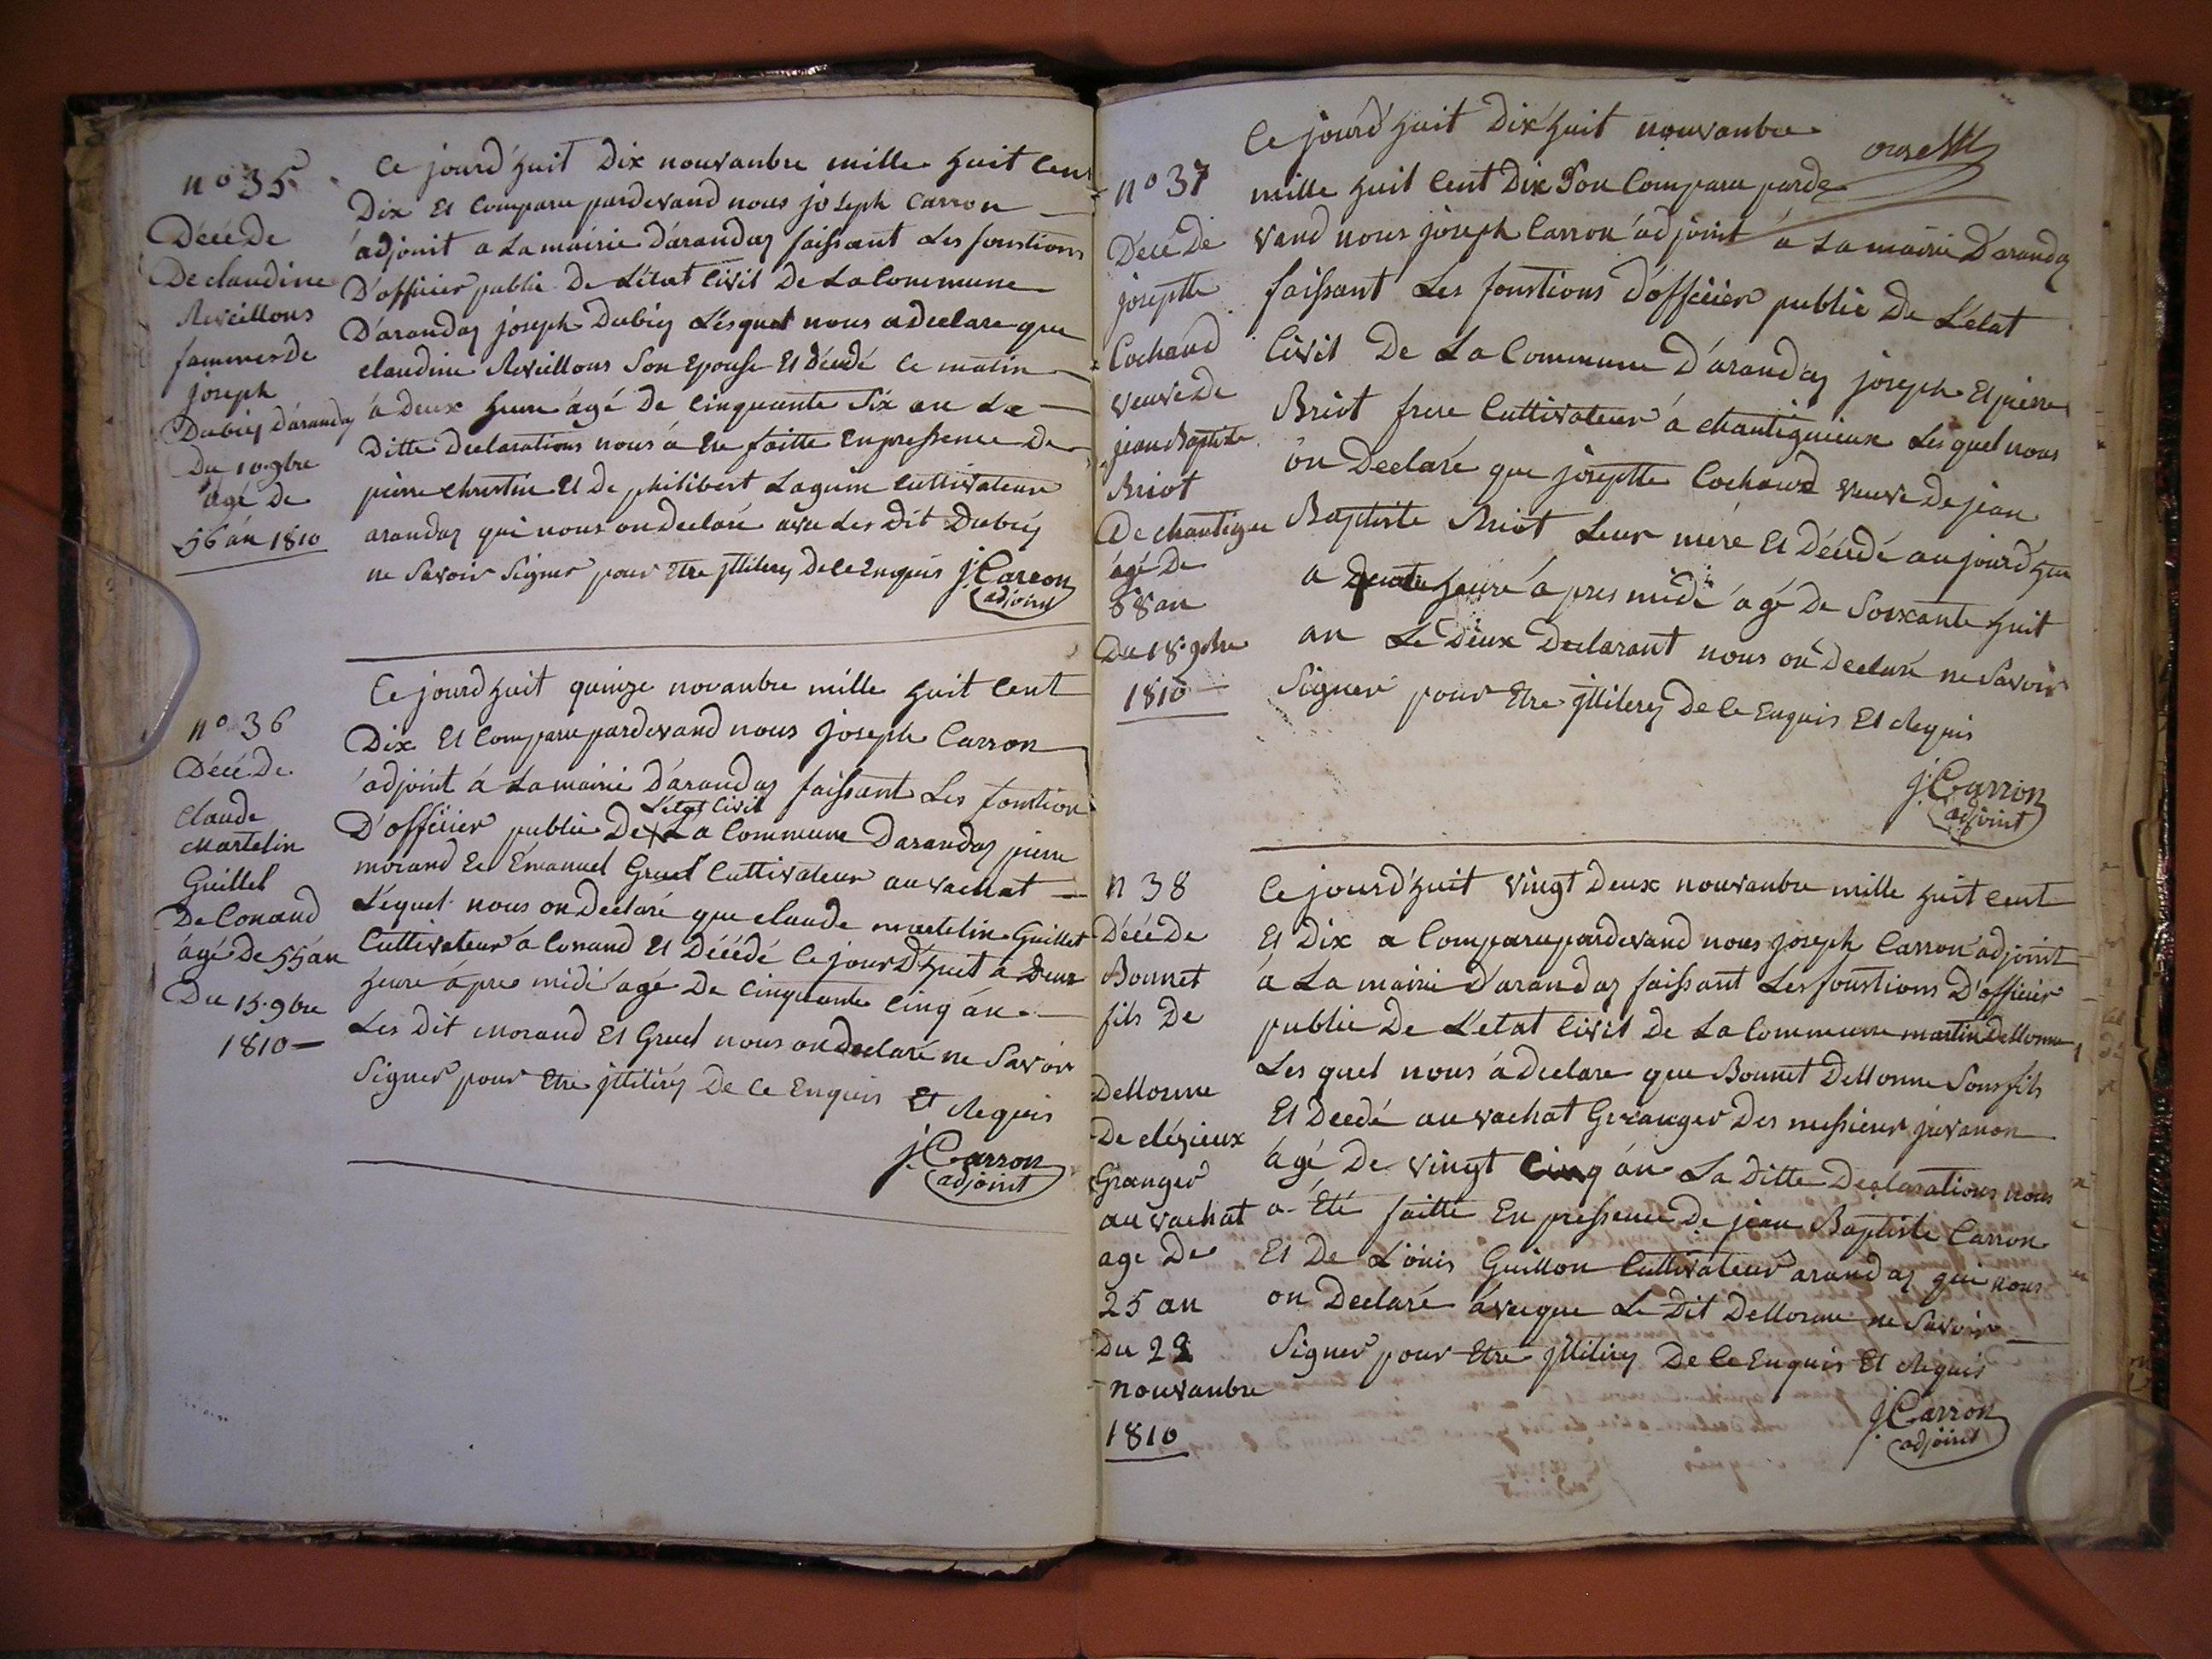 n° 35
Décé De
De claudine
Reveillons
fammes de
joseph
Dubiey D'aranday
Du 10. 9bre
agé de
56 án 1810
Ce jourd'huit Dix nouvanbre mille huit Cent
Dix Et Comparu pardevand nous joseph Carron
adjoint a La mairie D'aranday faissant Les fonstions
D'officier public De L'état Civil De La Commune
D'aranday joseph Dubiey Lesquel nous a declare que
claudine Reveillons Son Epouse Et Décédé Ce matin
a Deux heure agé De Cinquante Six an La
Ditte Declarations nous a Ete faitte En pressence De
pierre Et De philibert Laguire Cultivateur
aranday qui nous on declaré avec Les Dit Dubiey
ne Savoir Signer pour Etre jlliterey De Ce Enquis J. Carron
adjoint
n° 36
Décé De
Claude
Martelin
Guillet
De Conand
agé De 55 án
Du 15. 9bre
1810
Ce jourd'huit quinze novanbre mille huit Cent
Dix Et Comparu pardevand nous Joseph Carron
adjoint á La mairie D'aranday faissant Les fonstion
L'etat Civil
D'officier public De La Commune Daranday pierre
morand Et Emanuel Gruel Cultivateur au vachat
Lequel nous on declaré que claude martelin Guillet
Cultivateur á Conand Et Décédé Ce jourd'huit á Deux
heure ápres midi agé De Cinquante Cinq án
Les Dit morand Et Gruel nous on declaré ne Savoir
Signer pour Etre jlliterey De Ce Enquis Et Requis
J. Carron
adjoint
n° 37
Décé De
joseptte
Cochand
veuve De
jean Baptiste
Briot
De chantigne
ágé De
68 an
Du 18. 9bre
1810
Ce jourd'huit Dix huit nouvanbre
mille huit Cent Dix Son Comparu parde
vand nous joseph Carron adjoint á La mairie D'aranday
faissant Les fonstions d'officier public De L'état
Civil De La Commune D'aranday joseph Et pierre
Briot frere Cultivateur á chantignieux Lesquel nous
ón Declaré que joseptte Cochand veuve De jean
Baptiste Briot Leur mére Et Décédé aujourd'hui
a heure ápres midi ágé De Soixante huit
an Le Deux Declarant nous on Declaré ne Savoir
Signer pour Etre jlliterey De Ce Enquis Et Requis
J. Carron
adjoint
n 38
Décé De
Bonnet
fils De
Dellorme
De clézieux
Granger
au vachat
age De
25 an
Du 22
nouvanbre
1810
Ce jourd'huit vingt Deux nouvanbre mille huit Cent
Et Dix a Comparu pardevand nous joseph Carron adjoint
á La mairie D'aranday faissant Les fonstions D'officier
public De L'etat Civil De La Commune martin Dellorme
Lesquel nous á declare que Bonnet Dellorme Sons fils
Et Decedé au vachat Geranger Des messieur juvanon
ágé De vingt Cinq án La Ditte Declarations nous
a Été faitte En pressence De jean Baptiste Carron
Et De Louis Guillon Cultivateur aranday qui nous
on Declaré áveique Le Dit Dellorme ne Savoir
Signer pour Etre jlliterey De Ce Enquis Et Requis
J. Carron
adjoint